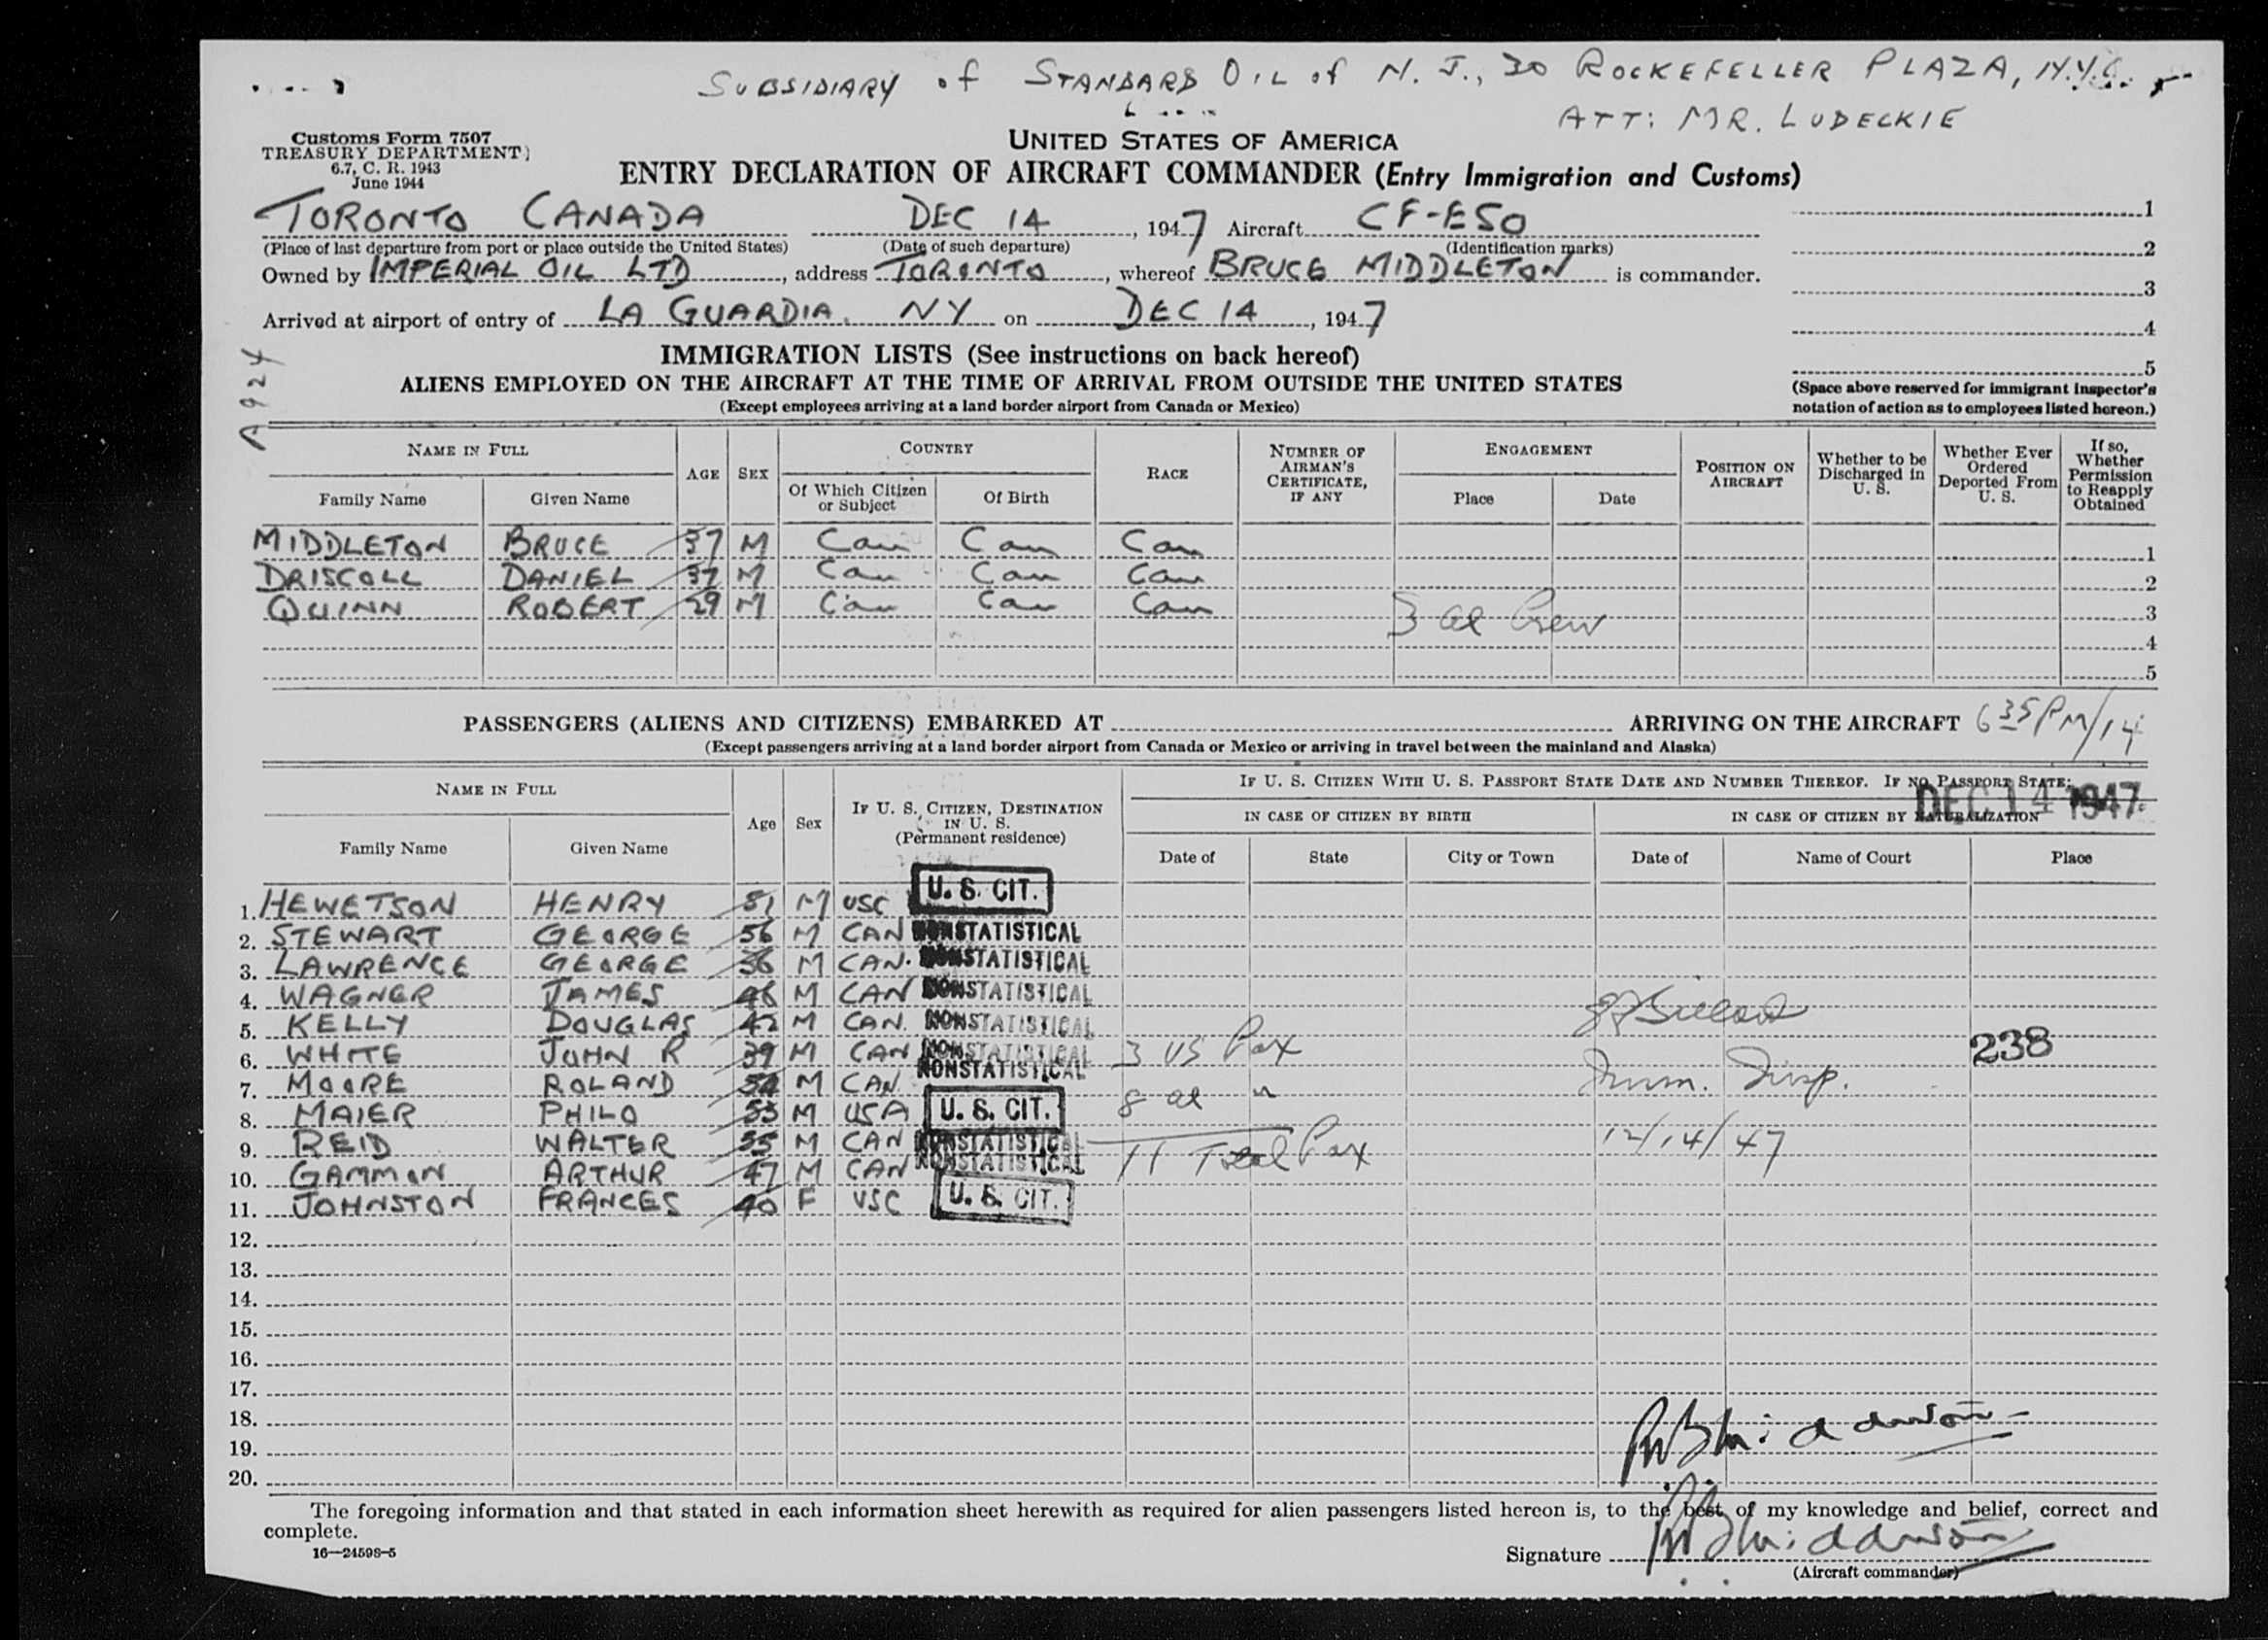 SUBSIDIARY of STANDARD OIL of N. J., 30 ROCKEFELLER PLAZA, N.Y.C.
ATT: MR. LUDECKIE
Customs Form 7507
TREASURY DEPARTMENT
6.7, C. R. 1943
June 1944
UNITED STATES OF AMERICA
ENTRY DECLARATION OF AIRCRAFT COMMANDER (Entry Immigration and Customs)
TORONTO CANADA DEC 14, 1947 Aircraft CF-ESO
(Place of last departure from port or place outside the United States) (Date of such departure) (Identification marks)
Owned by IMPERIAL OIL LTD, address TORONTO, whereof BRUCE MIDDLETON is commander.
Arrived at airport of entry of LA GUARDIA. NY on DEC 14, 1947
1
2
3
4
5
(Space above reserved for immigrant inspector's
notation of action as to employees listed hereon.)
A924
IMMIGRATION LISTS (See instructions on back hereof)
ALIENS EMPLOYED ON THE AIRCRAFT AT THE TIME OF ARRIVAL FROM OUTSIDE THE UNITED STATES
(Except employees arriving at a land border airport from Canada or Mexico)
NAME IN FULL
Family Name Given Name
AGE SEX
COUNTRY
Of Which Citizen or Subject Of Birth
RACE
NUMBER OF AIRMAN'S CERTIFICATE, IF ANY
ENGAGEMENT
Place Date
POSITION ON AIRCRAFT
Whether to be Discharged in U. S.
Whether Ever Ordered Deported From U. S.
If so, Whether Permission to Reapply Obtained
MIDDLETON BRUCE 37 M Can Can Can 1
DRISCOLL DANIEL 37 M Can Can Can 2
QUINN ROBERT 29 M Can Can Can 3 al Crew 3
4
5
PASSENGERS (ALIENS AND CITIZENS) EMBARKED AT ARRIVING ON THE AIRCRAFT 6 35 PM/14
(Except passengers arriving at a land border airport from Canada or Mexico or arriving in travel between the mainland and Alaska)
DEC 14 1947
NAME IN FULL
Family Name Given Name
Age Sex
IF U. S. CITIZEN, DESTINATION IN U. S. (Permanent residence)
IF U. S. CITIZEN WITH U. S. PASSPORT STATE DATE AND NUMBER THEREOF. IF NO PASSPORT STATE:
IN CASE OF CITIZEN BY BIRTH IN CASE OF CITIZEN BY NATURALIZATION
Date of State City or Town Date of Name of Court Place
1. HEWETSON HENRY 51 M USC U. S. CIT.
2. STEWART GEORGE 56 M CAN NONSTATISTICAL
3. LAWRENCE GEORGE 36 M CAN. NONSTATISTICAL
4. WAGNER JAMES 46 M CAN NONSTATISTICAL
5. KELLY DOUGLAS 42 M CAN. NONSTATISTICAL
6. WHITE JOHN R 39 M CAN NONSTATISTICAL 3 US Pax 238
7. MOORE ROLAND 54 M CAN. NONSTATISTICAL 8 al " Imm. Insp.
8. MAIER PHILO 53 M USA U. S. CIT.
9. REID WALTER 55 M CAN NONSTATISTICAL 12/14/47
10. GAMMON ARTHUR 47 M CAN NONSTATISTICAL 11 Total Pax
11. JOHNSTON FRANCES 40 F USC U. S. CIT.
12.
13.
14.
15.
16.
17.
18.
19.
20.
The foregoing information and that stated in each information sheet herewith as required for alien passengers listed hereon is, to the best of my knowledge and belief, correct and
complete.
16—24598-5
Signature
(Aircraft commander)